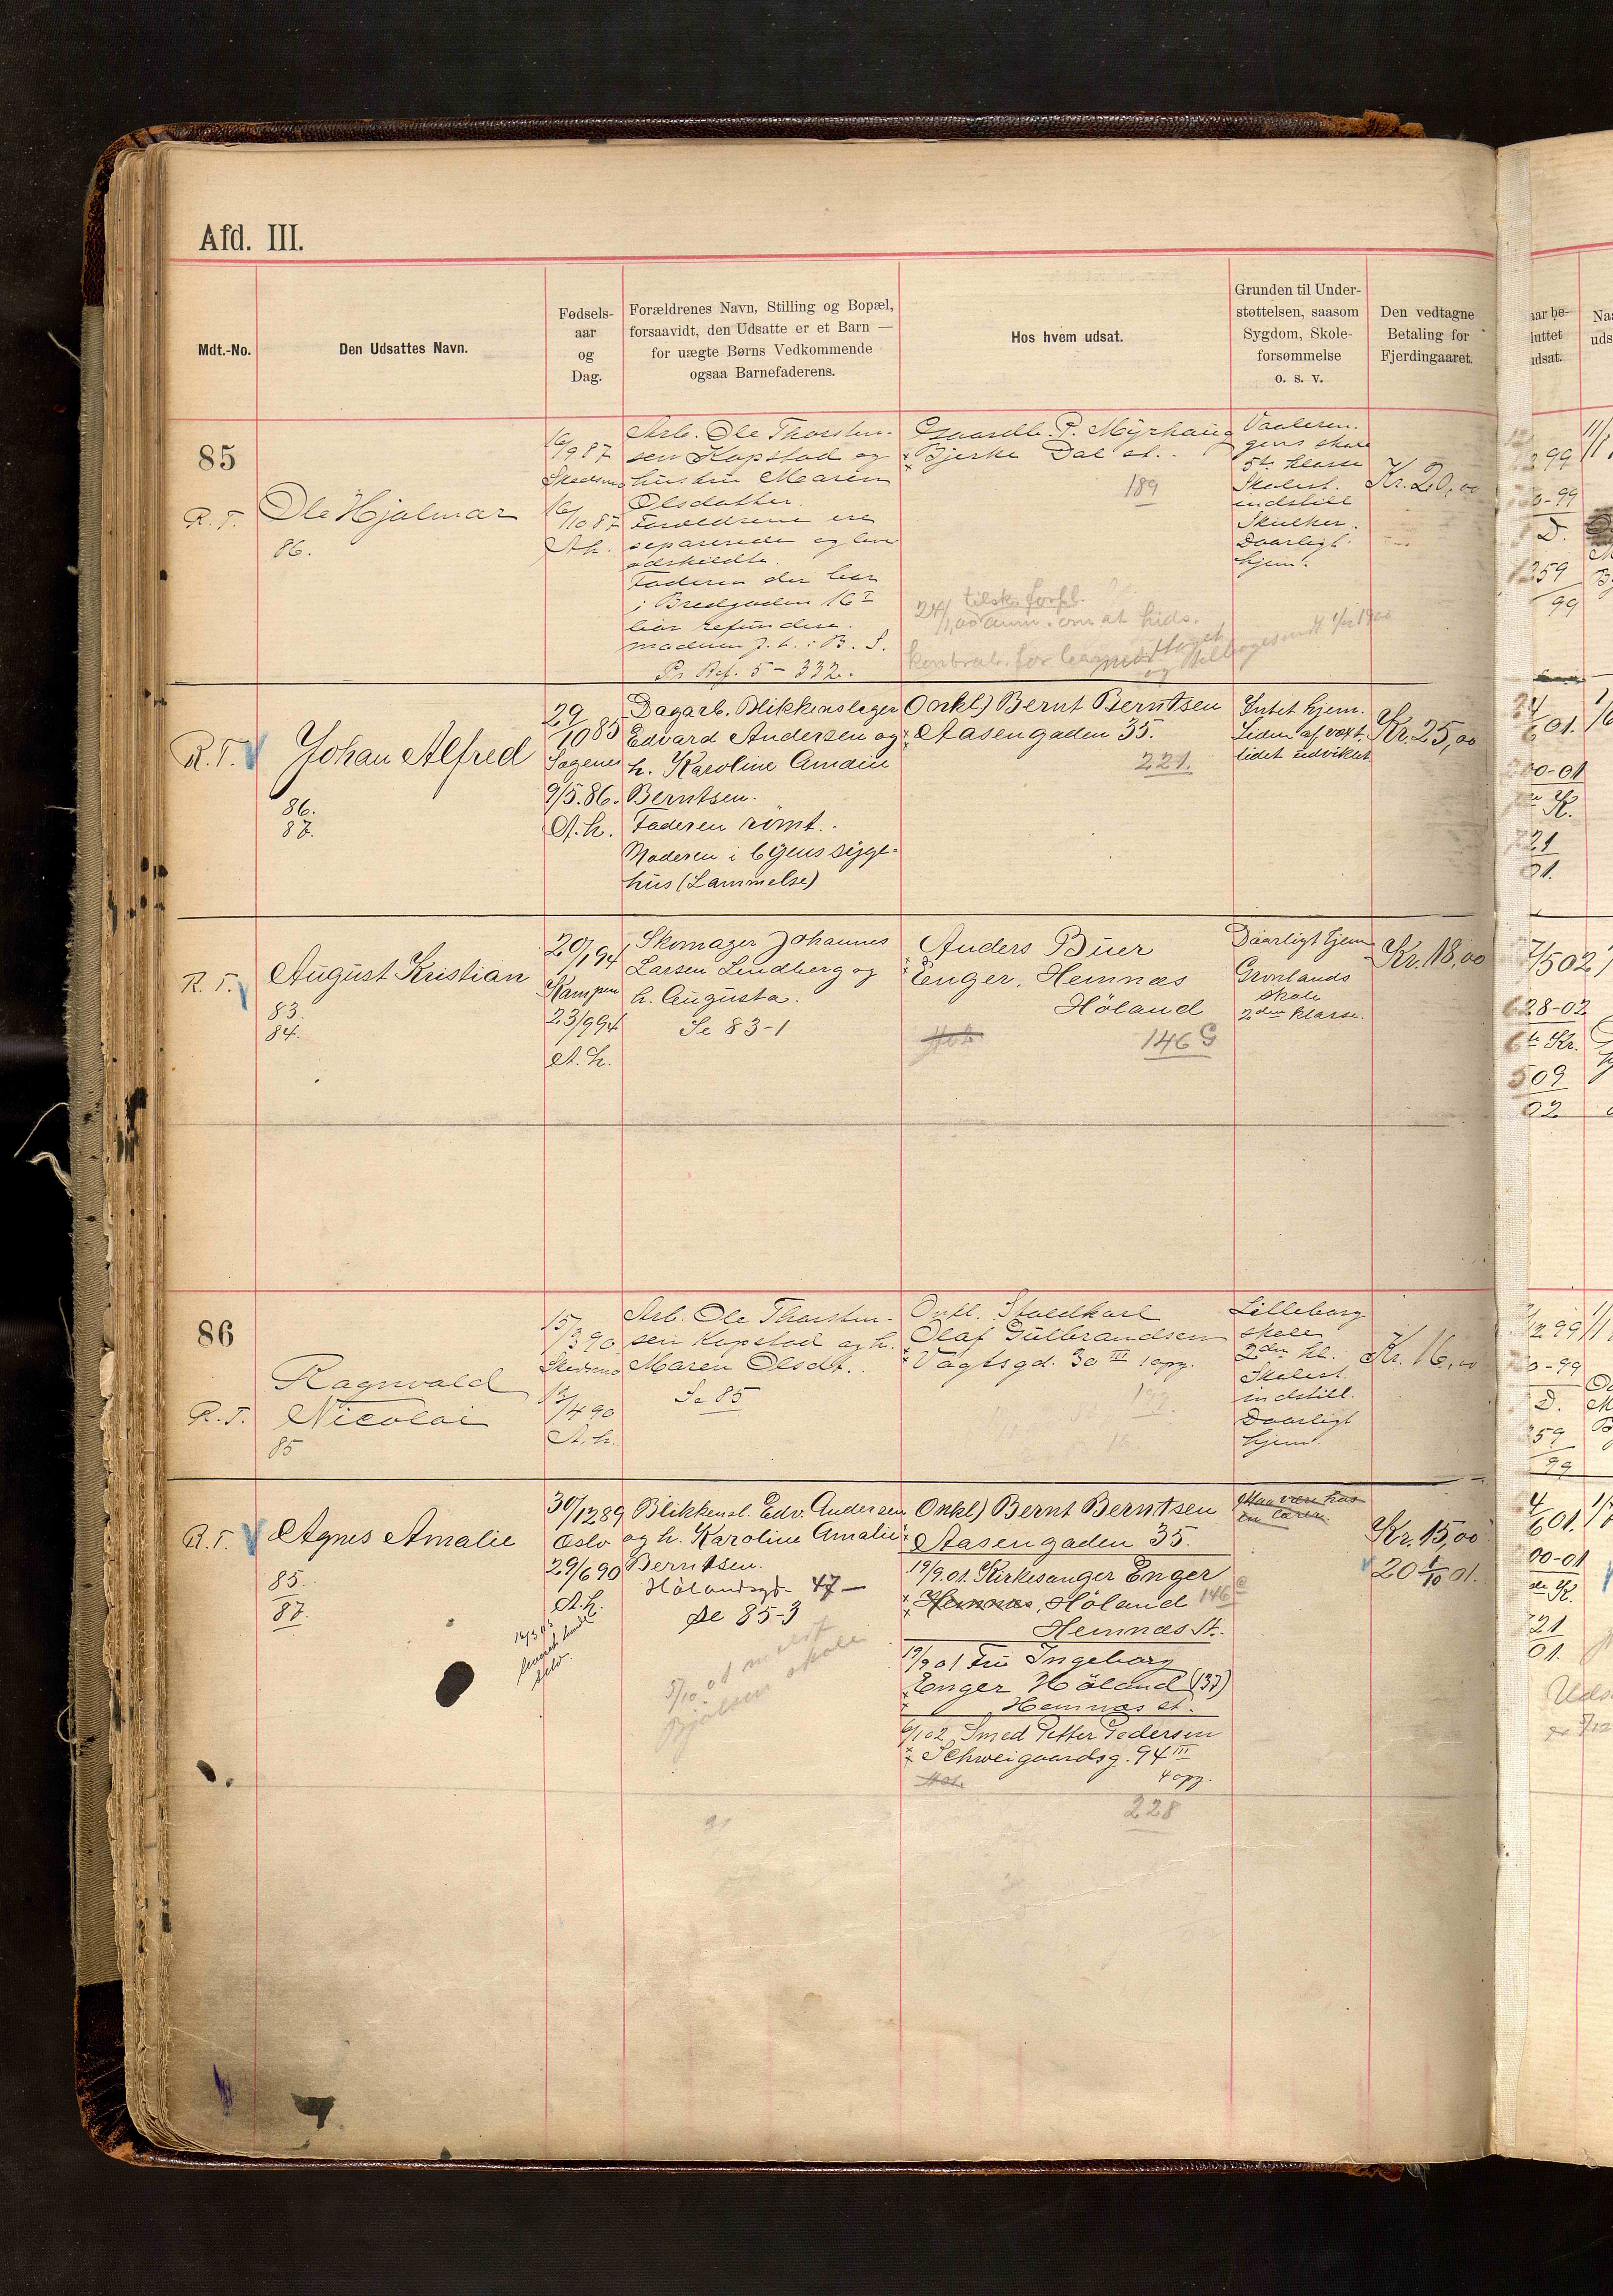 Afd. III.
Mdt.-No.
Den Udsattes Navn.
Fødsels-
aar
og
Dag.
Forældrenes Navn, Stilling og Bopæl,
forsaavidt, den Udsatte er et Barn —
for uægte Børns Vedkommende
ogsaa Barnefaderens.
Hos hvem udsat.
Grunden til Under-
støttelsen, saasom
Sygdom, Skole-
forsømmelse
o. s. v.
Den vedtagne
Betaling for
Fjerdingaaret.
85
R. T.
Ole Hjalmar
86.
16/9 87
16/10 87
A. h.
Arb. Ole Thorsten-
sen Kopstad og
hustru Maren
Olsdatter.
Forældrene ere
separerede og leve
adskildte.
Faderen der bor
i Bredgaden 16 I
bør refundere.
Gaardb. P. Myrhaug
Bjerke Dal st.
189
Vaaleren-
gens skole
5te klasse
Skolest.
indstill
Skulker.
Daarligt
hjem.
Kr. 20,00
R. T.
Johan Alfred
86.
87.
29/10 85
Sagenes
9/5. 86.
A. h.
Dagarb. Blikkenslager
Edvard Andersen og
h. Karoline Amalie
Berntsen.
Faderen rømt.
Moderen i Byens syge-
hus (Lammelse)
Onkl) Bernt Berntsen
Aasengaden 35.
221.
Intet hjem.
Liden af vext.
lidet udviklet
Kr. 25,00
R. T.
August Kristian
83.
84.
20/1 94
Kampen
23/9 94
A. h.
Skomager Johannes
Larsen Lindberg og
h. Augusta.
Se 83-1
Anders Buer
Enger, Hemnæs
Höland
146 G
Daarligt hjem
Grønlands
skole
2den klasse.
Kr. 18,00
86
R. T.
Ragnvald
Nicolai
85
15/3 90
13/4 90
A. h.
Arb. Ole Thorsten-
sen Kopstad og h.
Maren Olsdt.
Se 85
Onkl. Staldkarl
Olaf Gulbrandsen
Vagtsgd. 30 III 1 opg.
199.
Lilleborg
skole
2den kl.
Skolest.
indstill.
Daarligt
hjem.
Kr. 16,00
R. T.
Agnes Amalie
85.
87.
30/12 89
Oslo
29/6 90
A. h.
Blikkensl. Edv. Andersen
og h. Karoline Amalie
Berntsen.
Hölandsgd. 47 —
Se 85-3
5/10 01
Bjølsen skole
Onkl) Bernt Berntsen
Aasengaden 35.
19/9. 01. Kirkesanger Enger
Hemnæs, Höland 146
Hemnæs St.
19/9 01 Fru Ingeborg
Enger Höland (37)
Hemnæs st.
6/1 02 Smed Petter Pedersen
Schweigaardsg. 94 III
4 opg.
228
Kr. 15,00
20 1/10 01.